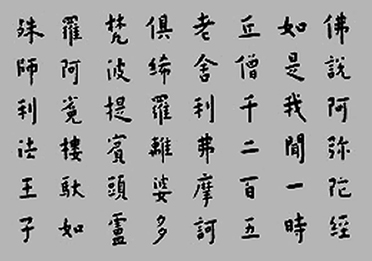 佛說阿弥陀經
如是我聞一時
丘僧千二百五
老舍利弗摩訶
俱絺羅離婆多
梵波提賓頭盧
羅阿㝹樓馱如
殊師利法王子